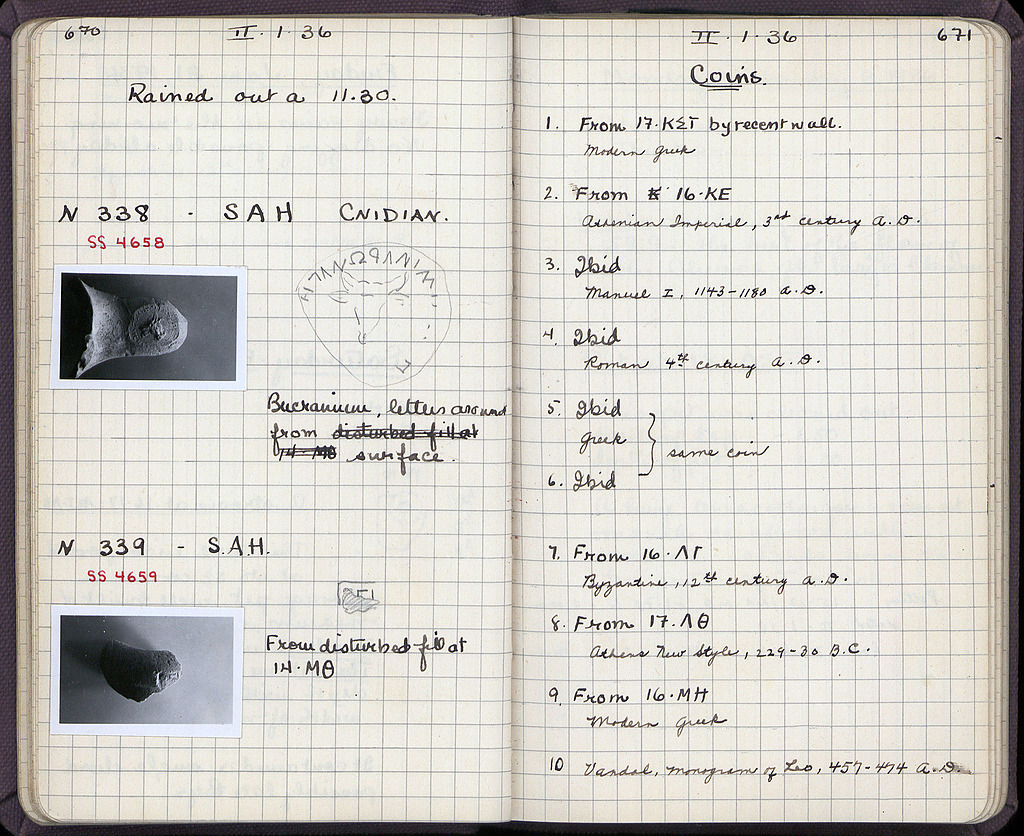 670
II · 1 · 36
Rained out a 11.30.
N 338 - SAH CNIDIAN.
SS 4658
Bucranium, letters around
from disturbed fill at
14 · ΜΘ surface.
N 339 - S.A.H.
SS 4659
From disturbed fill at
14 · ΜΘ
II · 1 · 36
671
Coins.
1. From 17·ΚΣΤ by recent wall.
Modern Greek
2. From 16·ΚΕ
Athenian Imperial, 3rd century A.D.
3. Ibid
Manuel I, 1143-1180 A.D.
4. Ibid
Roman 4th century A.D.
5. Ibid
Greek
same coin
6. Ibid
7. From 16·ΛΓ
Byzantine, 12th century A.D.
8. From 17·ΛΘ
Athens New Style, 229-30 B.C.
9. From 16·ΜΗ
Modern Greek
10 Vandal, monogram of Leo, 457-474 A.D.